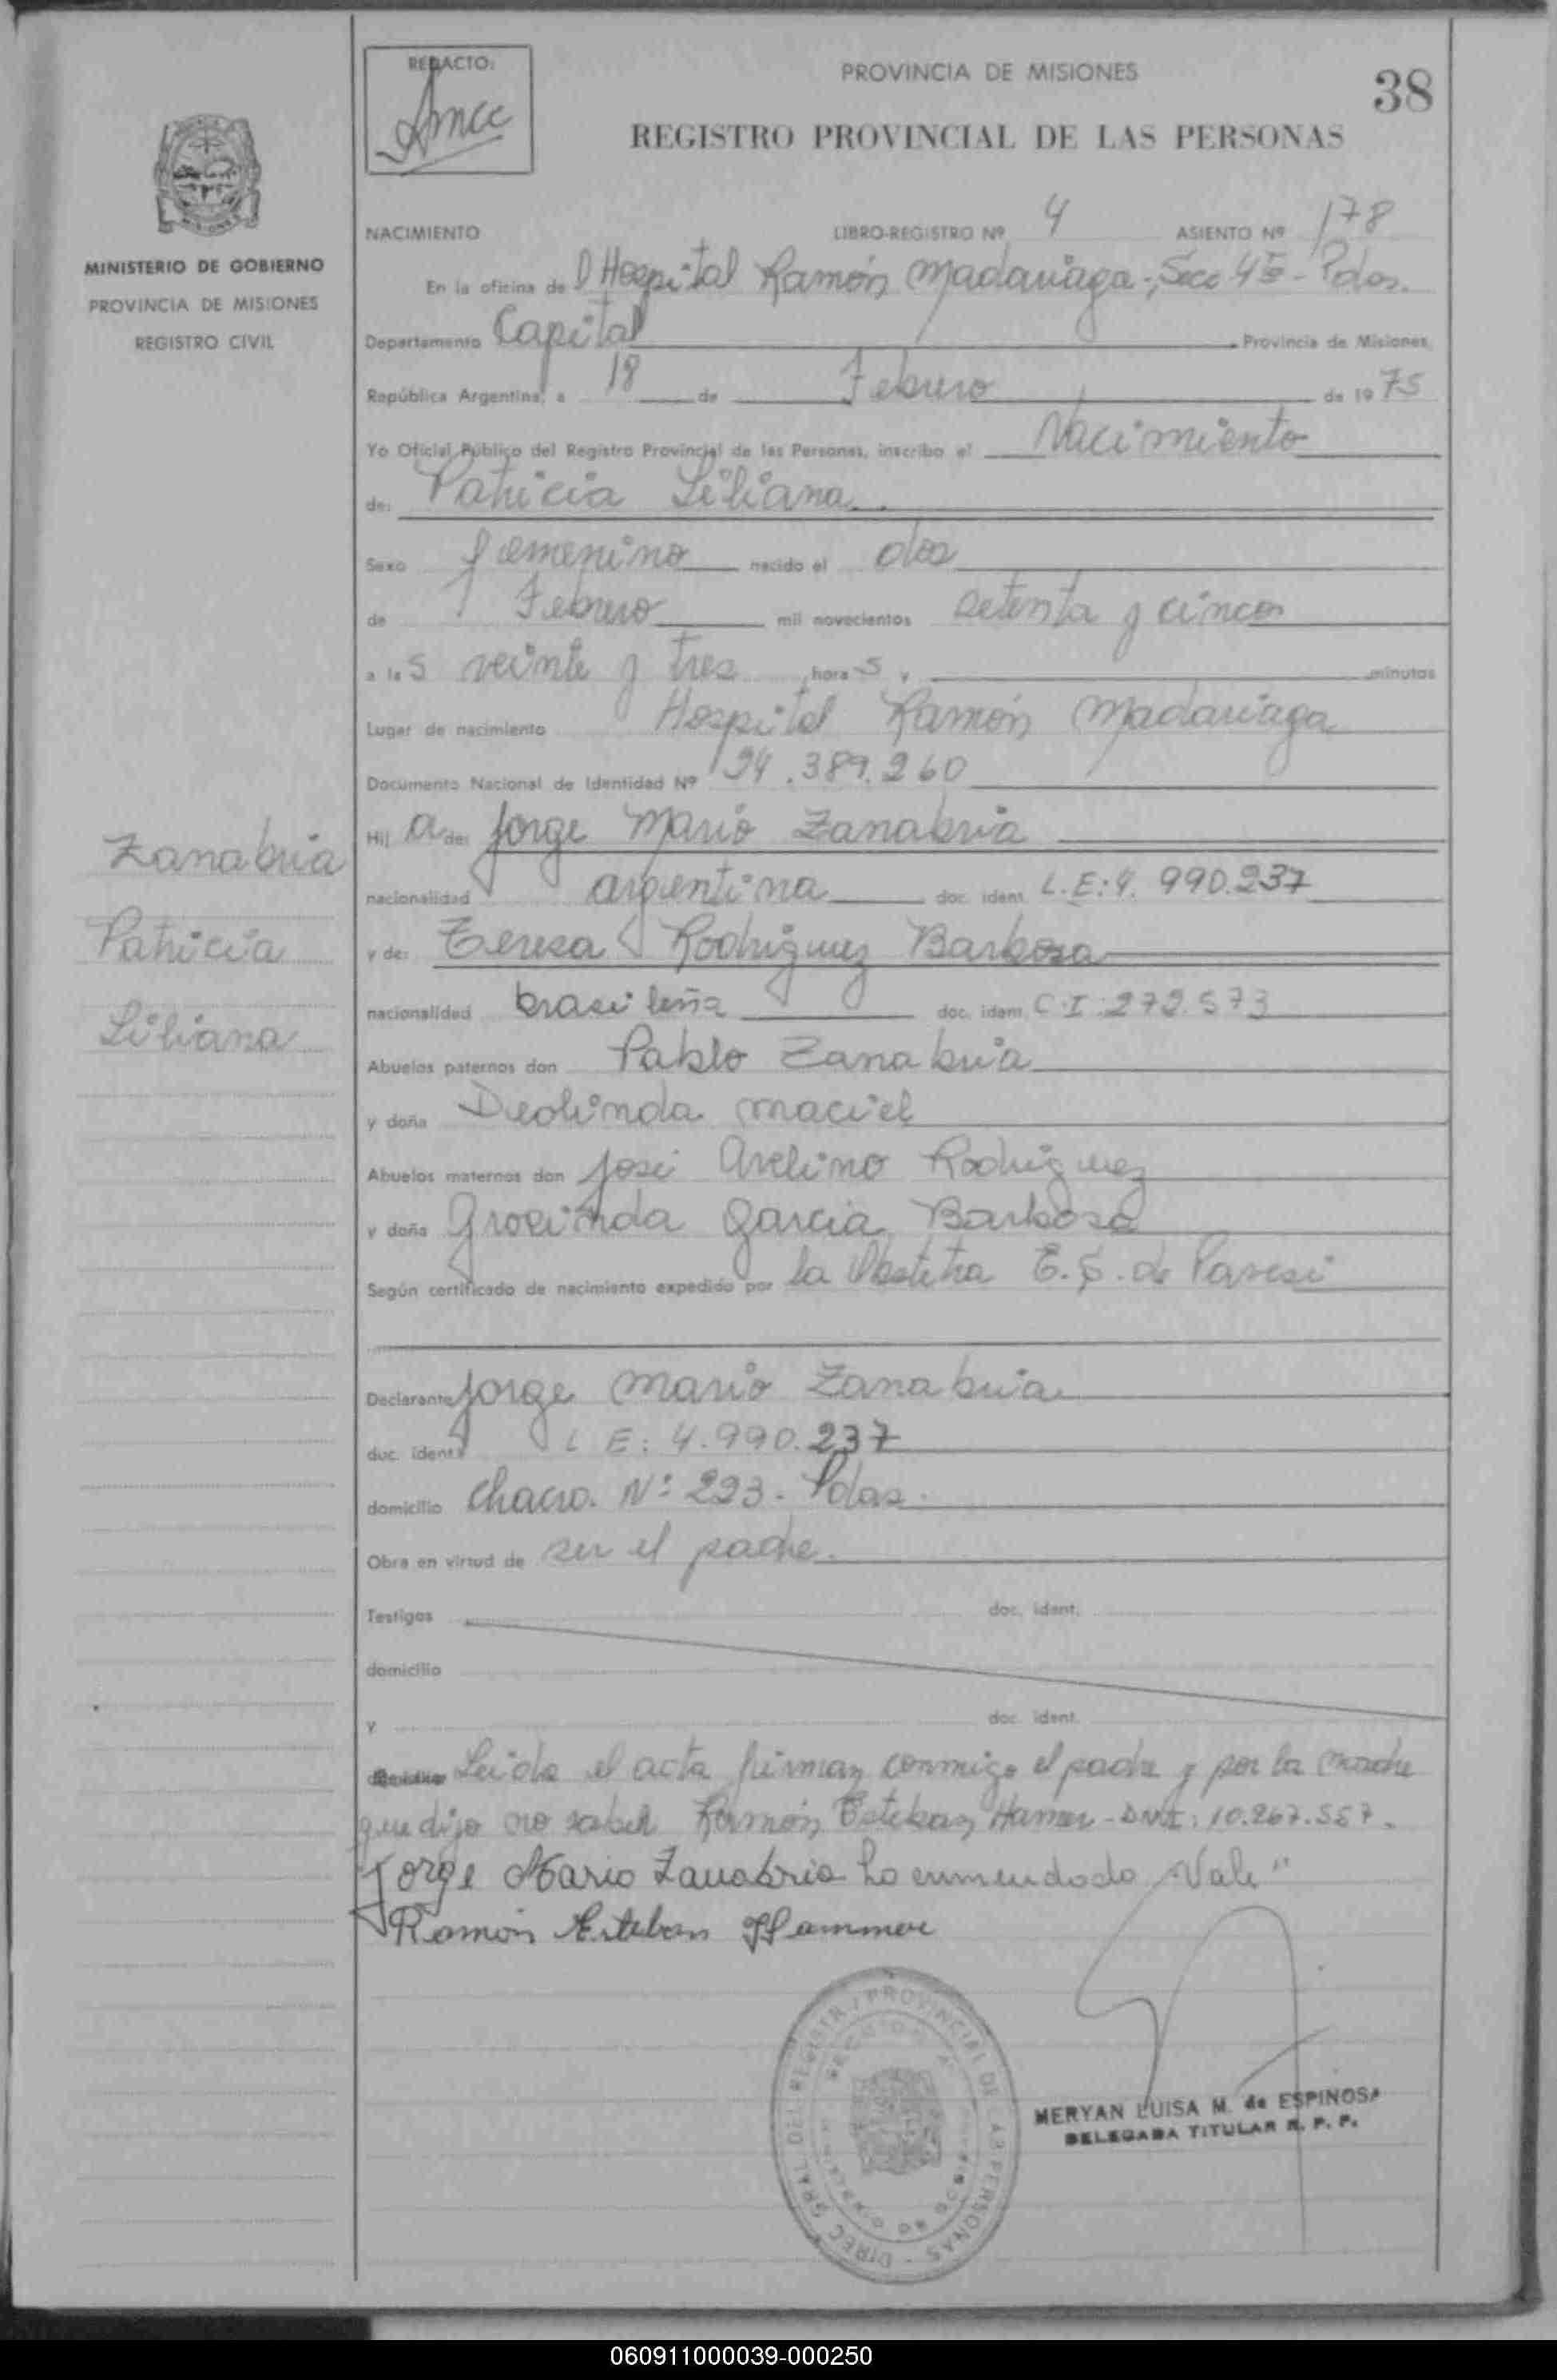 REDACTO:
PROVINCIA DE MISIONES
38
REGISTRO PROVINCIAL DE LAS PERSONAS
MISIONES
MINISTERIO DE GOBIERNO
PROVINCIA DE MISIONES
REGISTRO CIVIL
NACIMIENTO LIBRO-REGISTRO Nº 4 ASIENTO Nº 178
En la oficina del Hospital Ramón Madariaga - Secc 4ª - Pdas.
Departamento Capital Provincia de Misiones,
República Argentina, a 18 de Febrero de 1975
Yo Oficial Público del Registro Provincial de las Personas, inscribo el Nacimiento
de: Patricia Liliana
Sexo femenino nacido el dos
de Febrero mil novecientos setenta y cinco
a las veinte y tres horas y minutos
Lugar de nacimiento Hospital Ramón Madariaga
Documento Nacional de Identidad Nº 24.389.260
Hija de: Jorge Mario Zanabria
nacionalidad argentina doc. ident. L.E: 4.990.237
y de: Teresa Rodriguez Barbosa
nacionalidad brasileña doc. ident. C.I: 272.573
Abuelos paternos don Pablo Zanabria
y doña Deolinda Maciel
Abuelos maternos don José Avelino Rodriguez
y doña Garcia Barbosa
Según certificado de nacimiento expedido por la Obstetra E.S. de Paresi
Declarante Jorge Mario Zanabria
doc. ident. L E: 4.990.237
domicilio Chacra Nº 223 - Pdas.
Obra en virtud de ser el padre.
Testigos doc. ident.
domicilio
y doc. ident.
Leida el acta firman conmigo el padre y por la madre
que dijo no saber Ramón Esteban Hamer - DNI: 10.267.557.
Jorge Mario Zanabria Lo enmendado Vale"
Ramón Esteban Hammer
Zanabria
Patricia
Liliana
DIREC GRAL DEL REGISTRO PROVINCIAL DE LAS PERSONAS
MERYAN LUISA M. de ESPINOSA
DELEGADA TITULAR R. P. P.
060911000039-000250